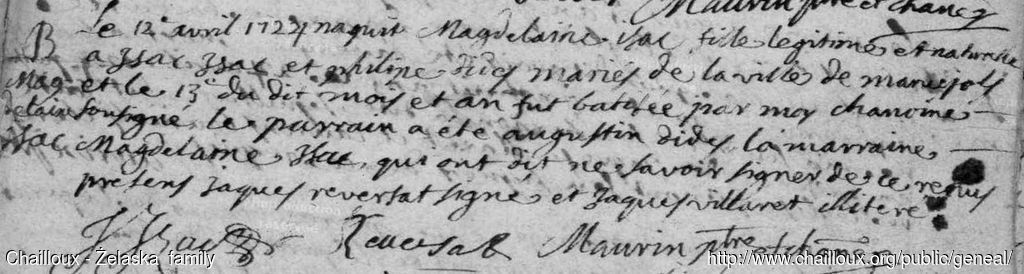 Maurin ptre et chanoe
B
Mag
delaine
Isac
Le 12e avril 1724 naquit Magdelaine Isac fille legitime et naturelle
a Isac Isac et philipe dides mariés de la ville de maruejols
et le 13e du dit mois et an fut batisée par moy chanoine
sousigné le parrain a été augustin dides la marraine
Magdelaine Isac qui ont dit ne savoir signer de ce requis
presens Jaques reversat signé et Jaques villaret illiteré
Reversat Maurin ptre et chanoe
Chailloux - Żelaska family
http://www.chailloux.org/public/geneal/